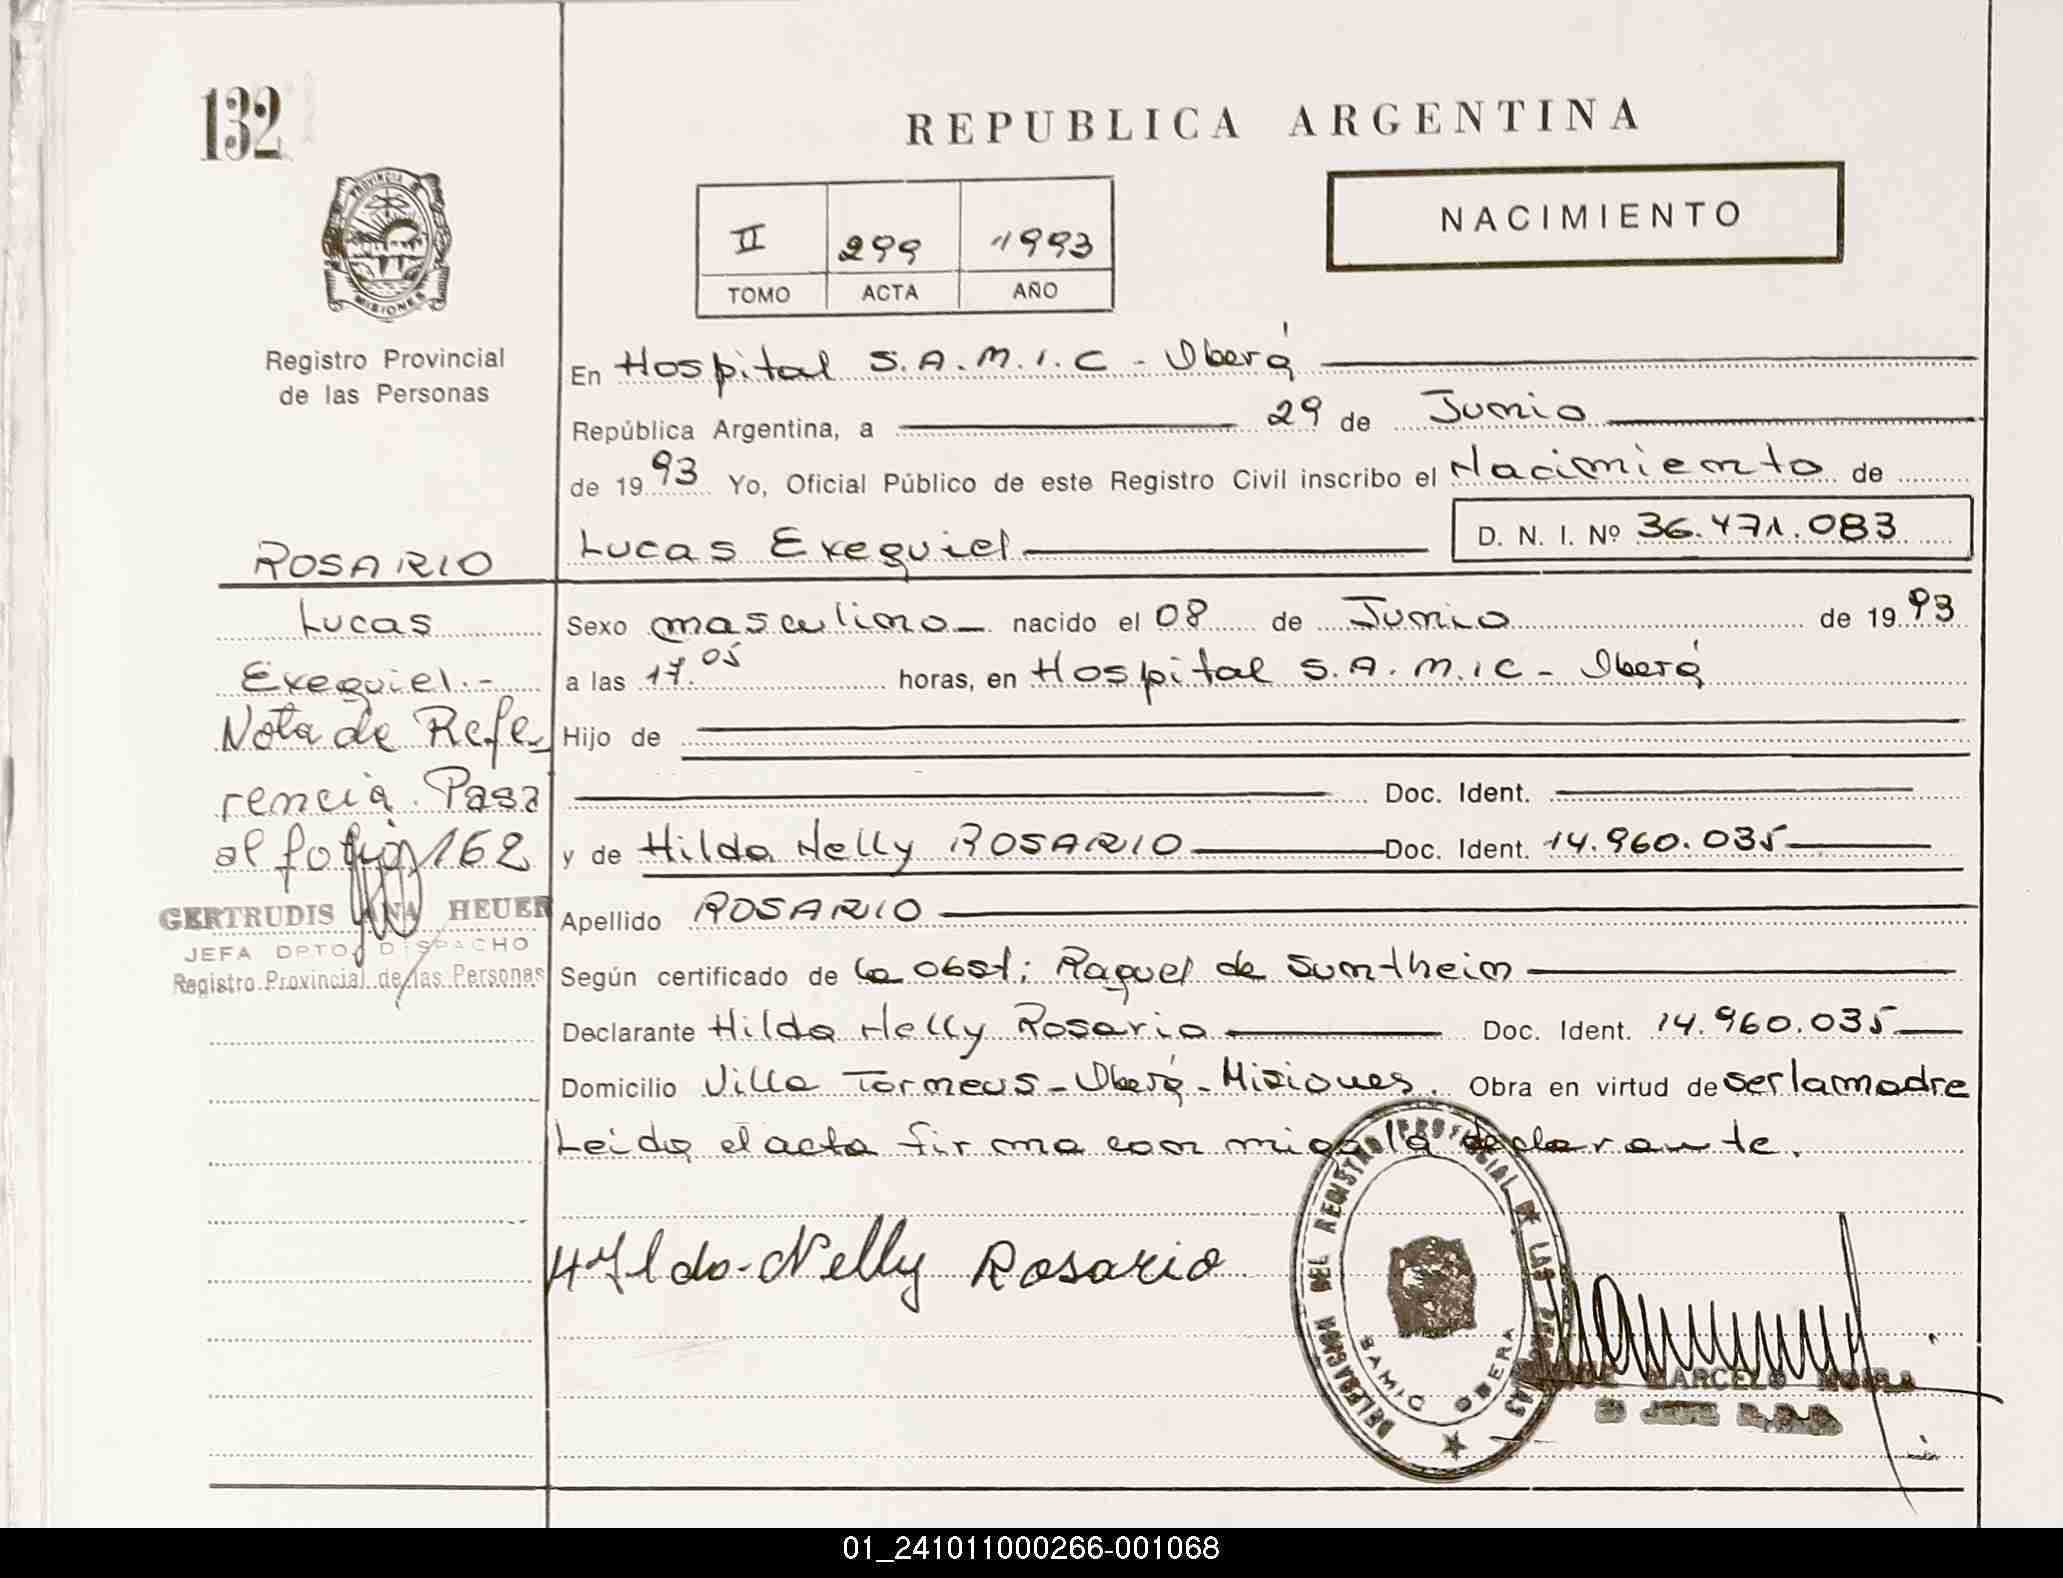 132
REPUBLICA ARGENTINA
PROVINCIA DE MISIONES
II 299 1993
TOMO ACTA AÑO
NACIMIENTO
Registro Provincial
de las Personas
En Hospital S.A.M.I.C - Oberá
República Argentina, a 29 de Junio
de 1993 Yo, Oficial Público de este Registro Civil inscribo el Nacimiento de
Lucas Exequiel D. N. I. Nº 36.471.083
ROSARIO
Lucas
Exequiel.-
Nota de Refe-
rencia. Pasa
al folio 162
GERTRUDIS ANA HEUER
JEFA DPTO. DESPACHO
Registro Provincial de las Personas
Sexo masculino - nacido el 08 de Junio de 1993
a las 17.05 horas, en Hospital S.A.M.I.C - Oberá
Hijo de
Doc. Ident.
y de Hilda Nelly ROSARIO Doc. Ident. 14.960.035
Apellido ROSARIO
Según certificado de la obst: Raquel de Sumtheim
Declarante Hilda Nelly Rosario Doc. Ident. 14.960.035
Domicilio Villa Torneus - Oberá - Misiones. Obra en virtud de ser la madre
Leida el acta firma con migo la declarante.
Hilda Nelly Rosario
DELEGACION DEL REGISTRO PROVINCIAL DE LAS PERSONAS
SAMIC OBERA
MARCELO
JEFE
01_241011000266-001068